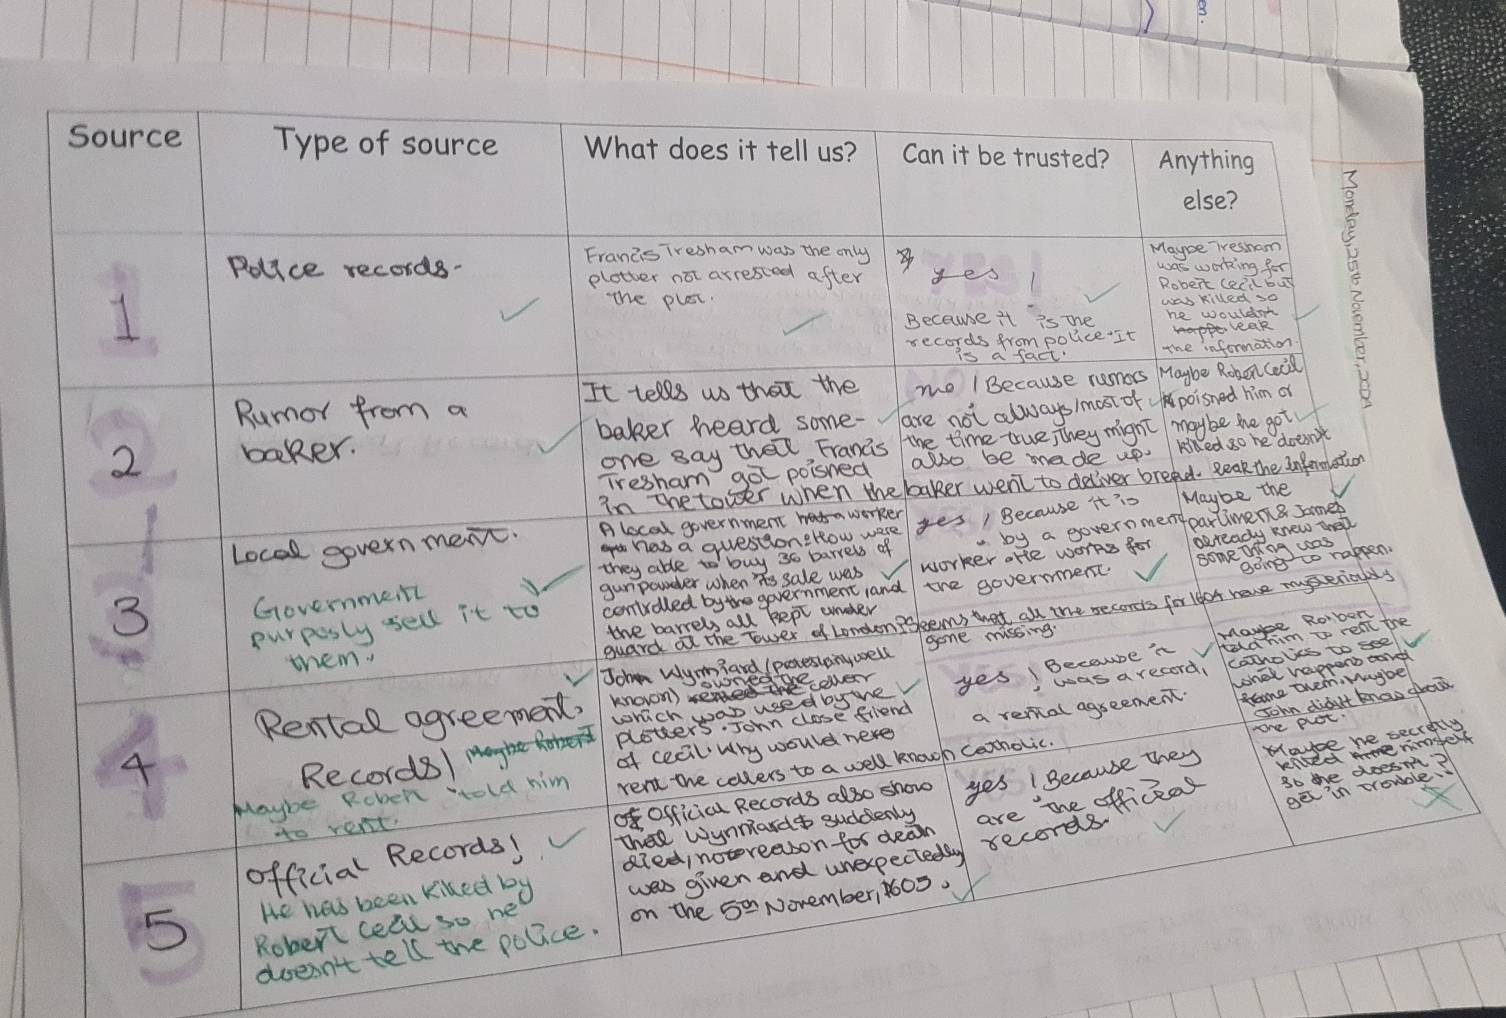 en.
Source
Type of source
What does it tell us?
Can it be trusted?
Anything
else?
Monday, 25th November, 2024
1
Police records.
Francis Tresham was the only
plotter not arrested after
the plot.
yes!
Because it is the
records from police. It
is a fact.
Maybe Tresham
was working for
Robert Cecil but
was killed so
he wouldn't
leak
the information.
2
Rumor from a
baker.
It tells us that the
baker heard some-
one say that Francis
Tresham got poisned
in the tower when the baker went to deliver bread.
no! Because rumors
are not always/most of
the time true, they might
also be made up.
Maybe Robert Cecil
poisned him or
maybe he got
killed so he doesn't
leak the information
3
Local government.
Government
purposly sell it to
them.
A local government worker
has a question: How were
they able to buy 36 barrels of
gunpowder when its sale was
controlled by the government, and
the barrels all kept under
guard at the Tower of London? Seems that all the records for 1604 have mysteriously
gone missing.
yes! Because it is
by a government
worker or He works for
the government.
Maybe the
parliment & James
already knew that
something was
going to happen.
4
Rental agreement,
Records!
Maybe Robert told him
to rent.
John Wynniard (
known) owned the celler
which was used by the
plotters. John close friend
of Cecil. Why would he
rent the cellers to a well known Catholic.
yes! Because it
was a record,
a rental agreement.
Maybe Robert
told him to rent the
catholics to see
what happens and
frame them. Maybe
John didn't know about
the plot.
5
Official Records!
He has been killed by
Robert Cecil so he
doesn't tell the police.
Official Records also show
that Wynniard suddenly
died, no reason for death
was given and unexpectedly
on the 5th November, 1605.
yes! Because they
are the official
records.
Maybe he secretly
killed himself
so he doesn't
get in trouble.?